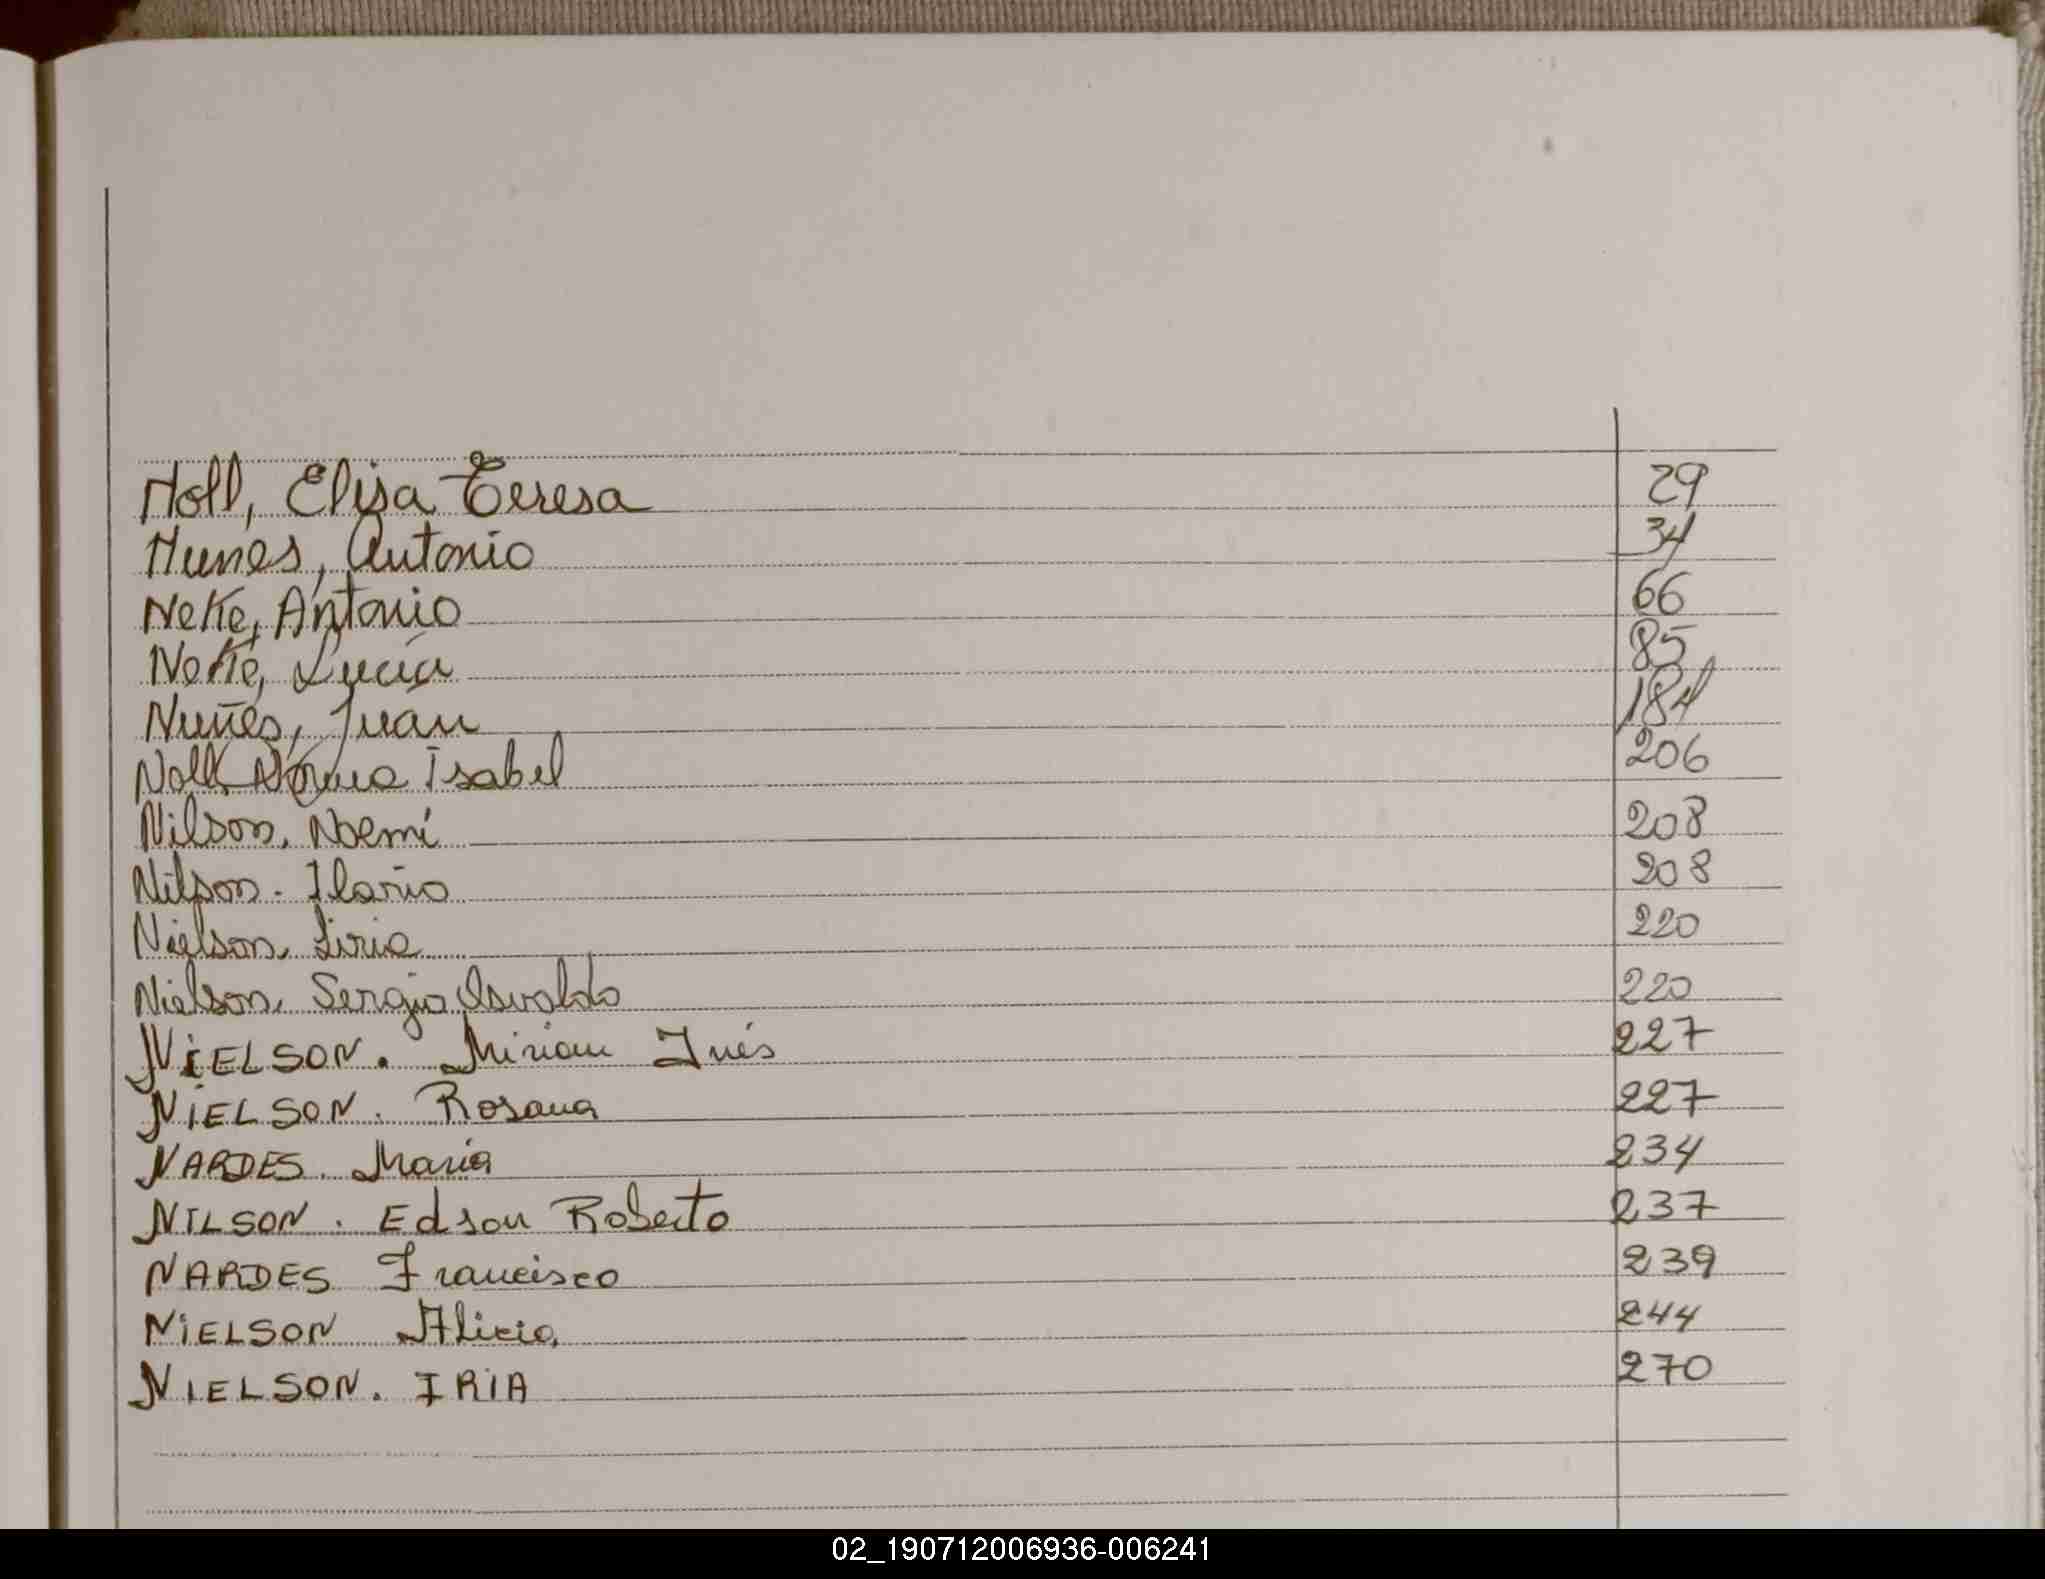 Noll, Elisa Teresa 29
Nunes, Antonio 34
Neke, Antonio 66
Neke, Lucía 85
Nuñes, Juan 184
Noll, Norma Isabel 206
Nilson, Noemí 208
Nilson. Ilario 208
Nielson, Liria 220
Nielson, Sergio Osvaldo 220
NiELSON. Miriam Inés 227
NiELSON. Rosana 227
NARDES. Maria 234
NILSON. Edson Roberto 237
NARDES Francisco 239
NiELSON Alicia, 244
NIELSON. IRiA 270
02_190712006936-006241